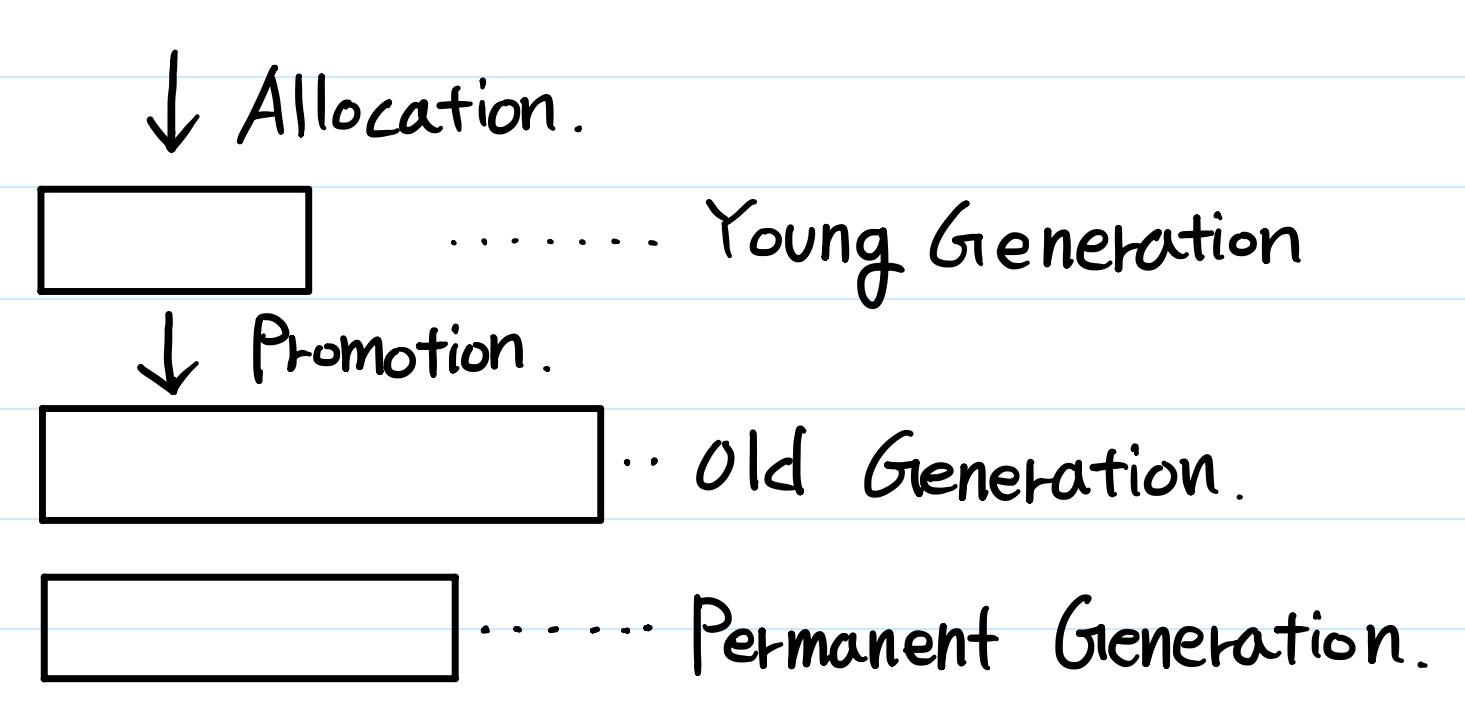 Allocation.
Young Generation
Promotion.
Old Generation.
Permanent Generation.